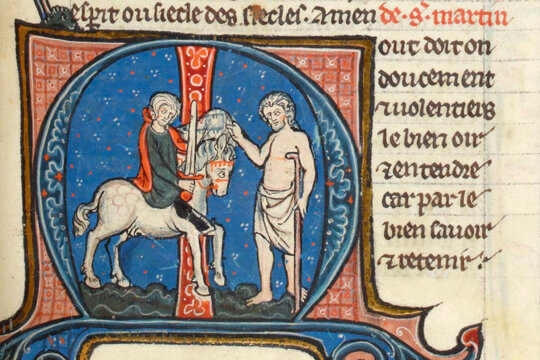 esprit ou siecle des siecles. amen de. s. martin
out doit on
doucement
⁊ uolentiers
le bien oir
⁊ entendre
car par le
bien sauoir
⁊ retenir.